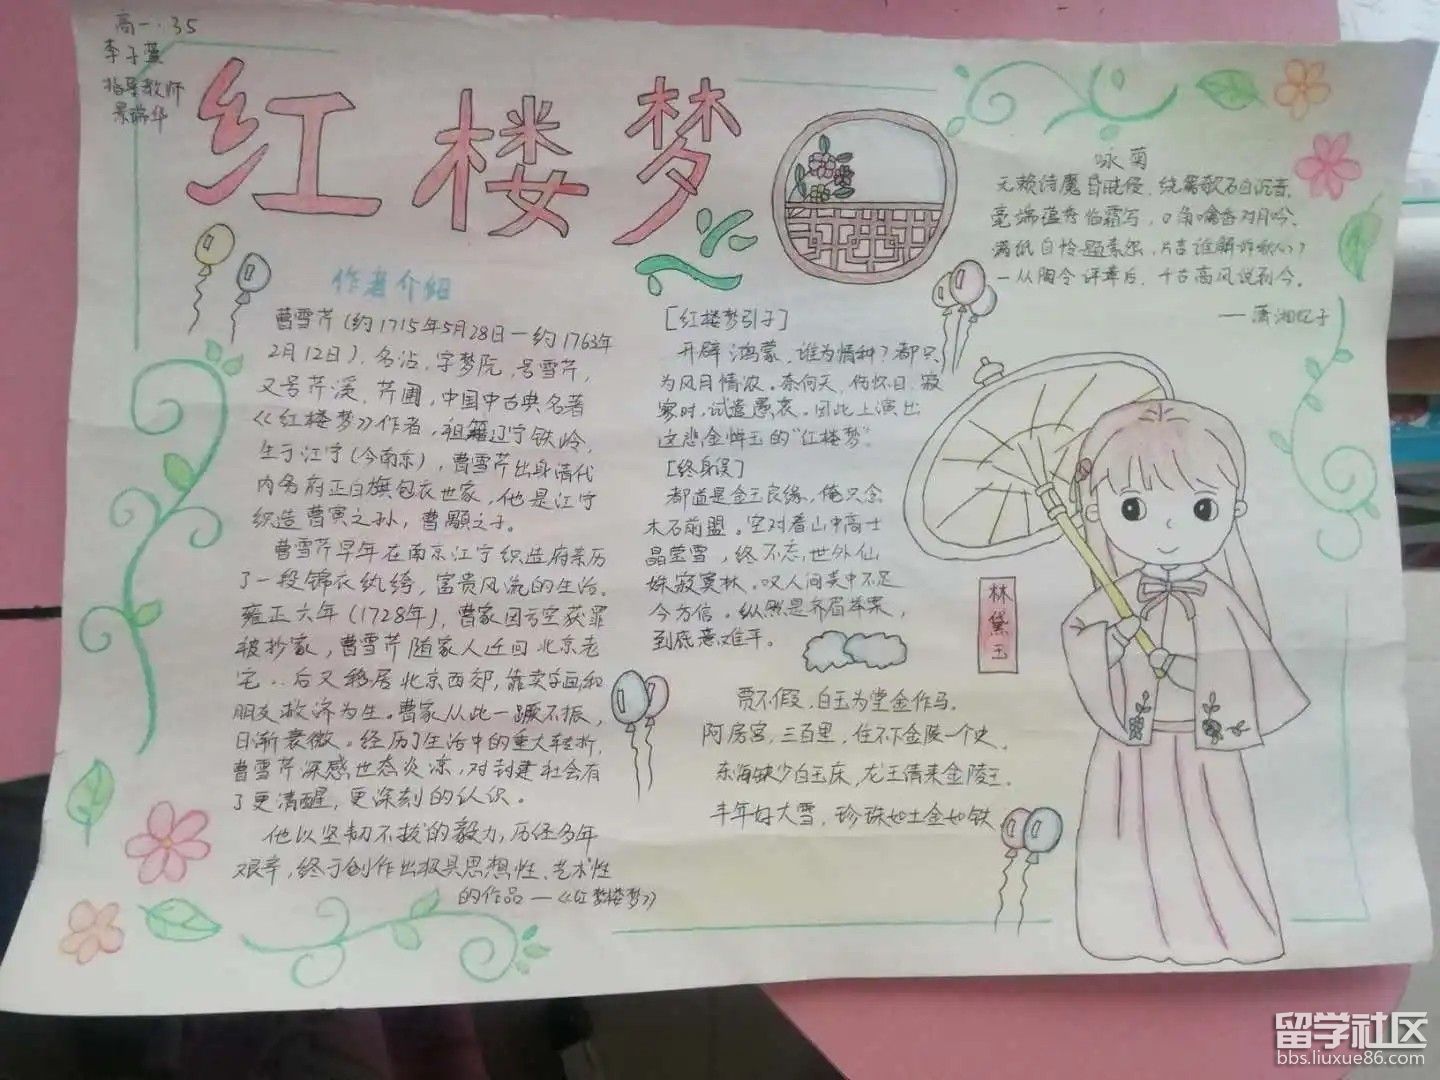 高一.35
李子萱
指导教师
景瑞华
红楼梦
作者介绍
曹雪芹(约1715年5月28日—约1763年
2月12日),名沾,字梦阮,号雪芹,
又号芹溪、芹圃,中国中古典名著
《红楼梦》作者,祖籍辽宁铁岭,
生于江宁(今南京),曹雪芹出身清代
内务府正白旗包衣世家,他是江宁
织造曹寅之孙,曹顒之子。
曹雪芹早年在南京江宁织造府亲历
了一段锦衣纨绔,富贵风流的生活。
雍正六年(1728年),曹家因亏空获罪
被抄家,曹雪芹随家人迁回北京老
宅..后又移居北京西郊,靠卖字画和
朋友救济为生。曹家从此一蹶不振,
日渐衰微。经历了生活中的重大转折,
曹雪芹深感世态炎凉,对封建社会有
了更清醒,更深刻的认识。
他以坚韧不拔的毅力,历经多年
艰辛,终于创作出极具思想性、艺术性
的作品—《红梦楼梦》
[红楼梦引子]
开辟鸿蒙,谁为情种?都只
为风月情浓。奈何天,伤怀日,寂
寥时,试遣愚衷。因此上演出
这悲金悼玉的“红楼梦”
[终身误]
都道是金玉良缘,俺只念
木石前盟。空对着山中高士
晶莹雪,终不忘,世外仙
姝寂寞林。叹人间美中不足
今方信。纵然是齐眉举案,
到底意难平。
贾不假,白玉为堂金作马。
阿房宫,三百里,住不下金陵一个史。
东海缺少白玉床,龙王请来金陵王。
丰年好大雪,珍珠如土金如铁
咏菊
无赖诗魔昏晓侵,绕篱欹石自沉音。
毫端蕴秀临霜写,口角噙香对月吟。
满纸自怜题素怨,片言谁解诉秋心?
一从陶令评章后,千古高风说到今。
—潇湘妃子
林黛玉
留学社区
bbs.liuxue86.com